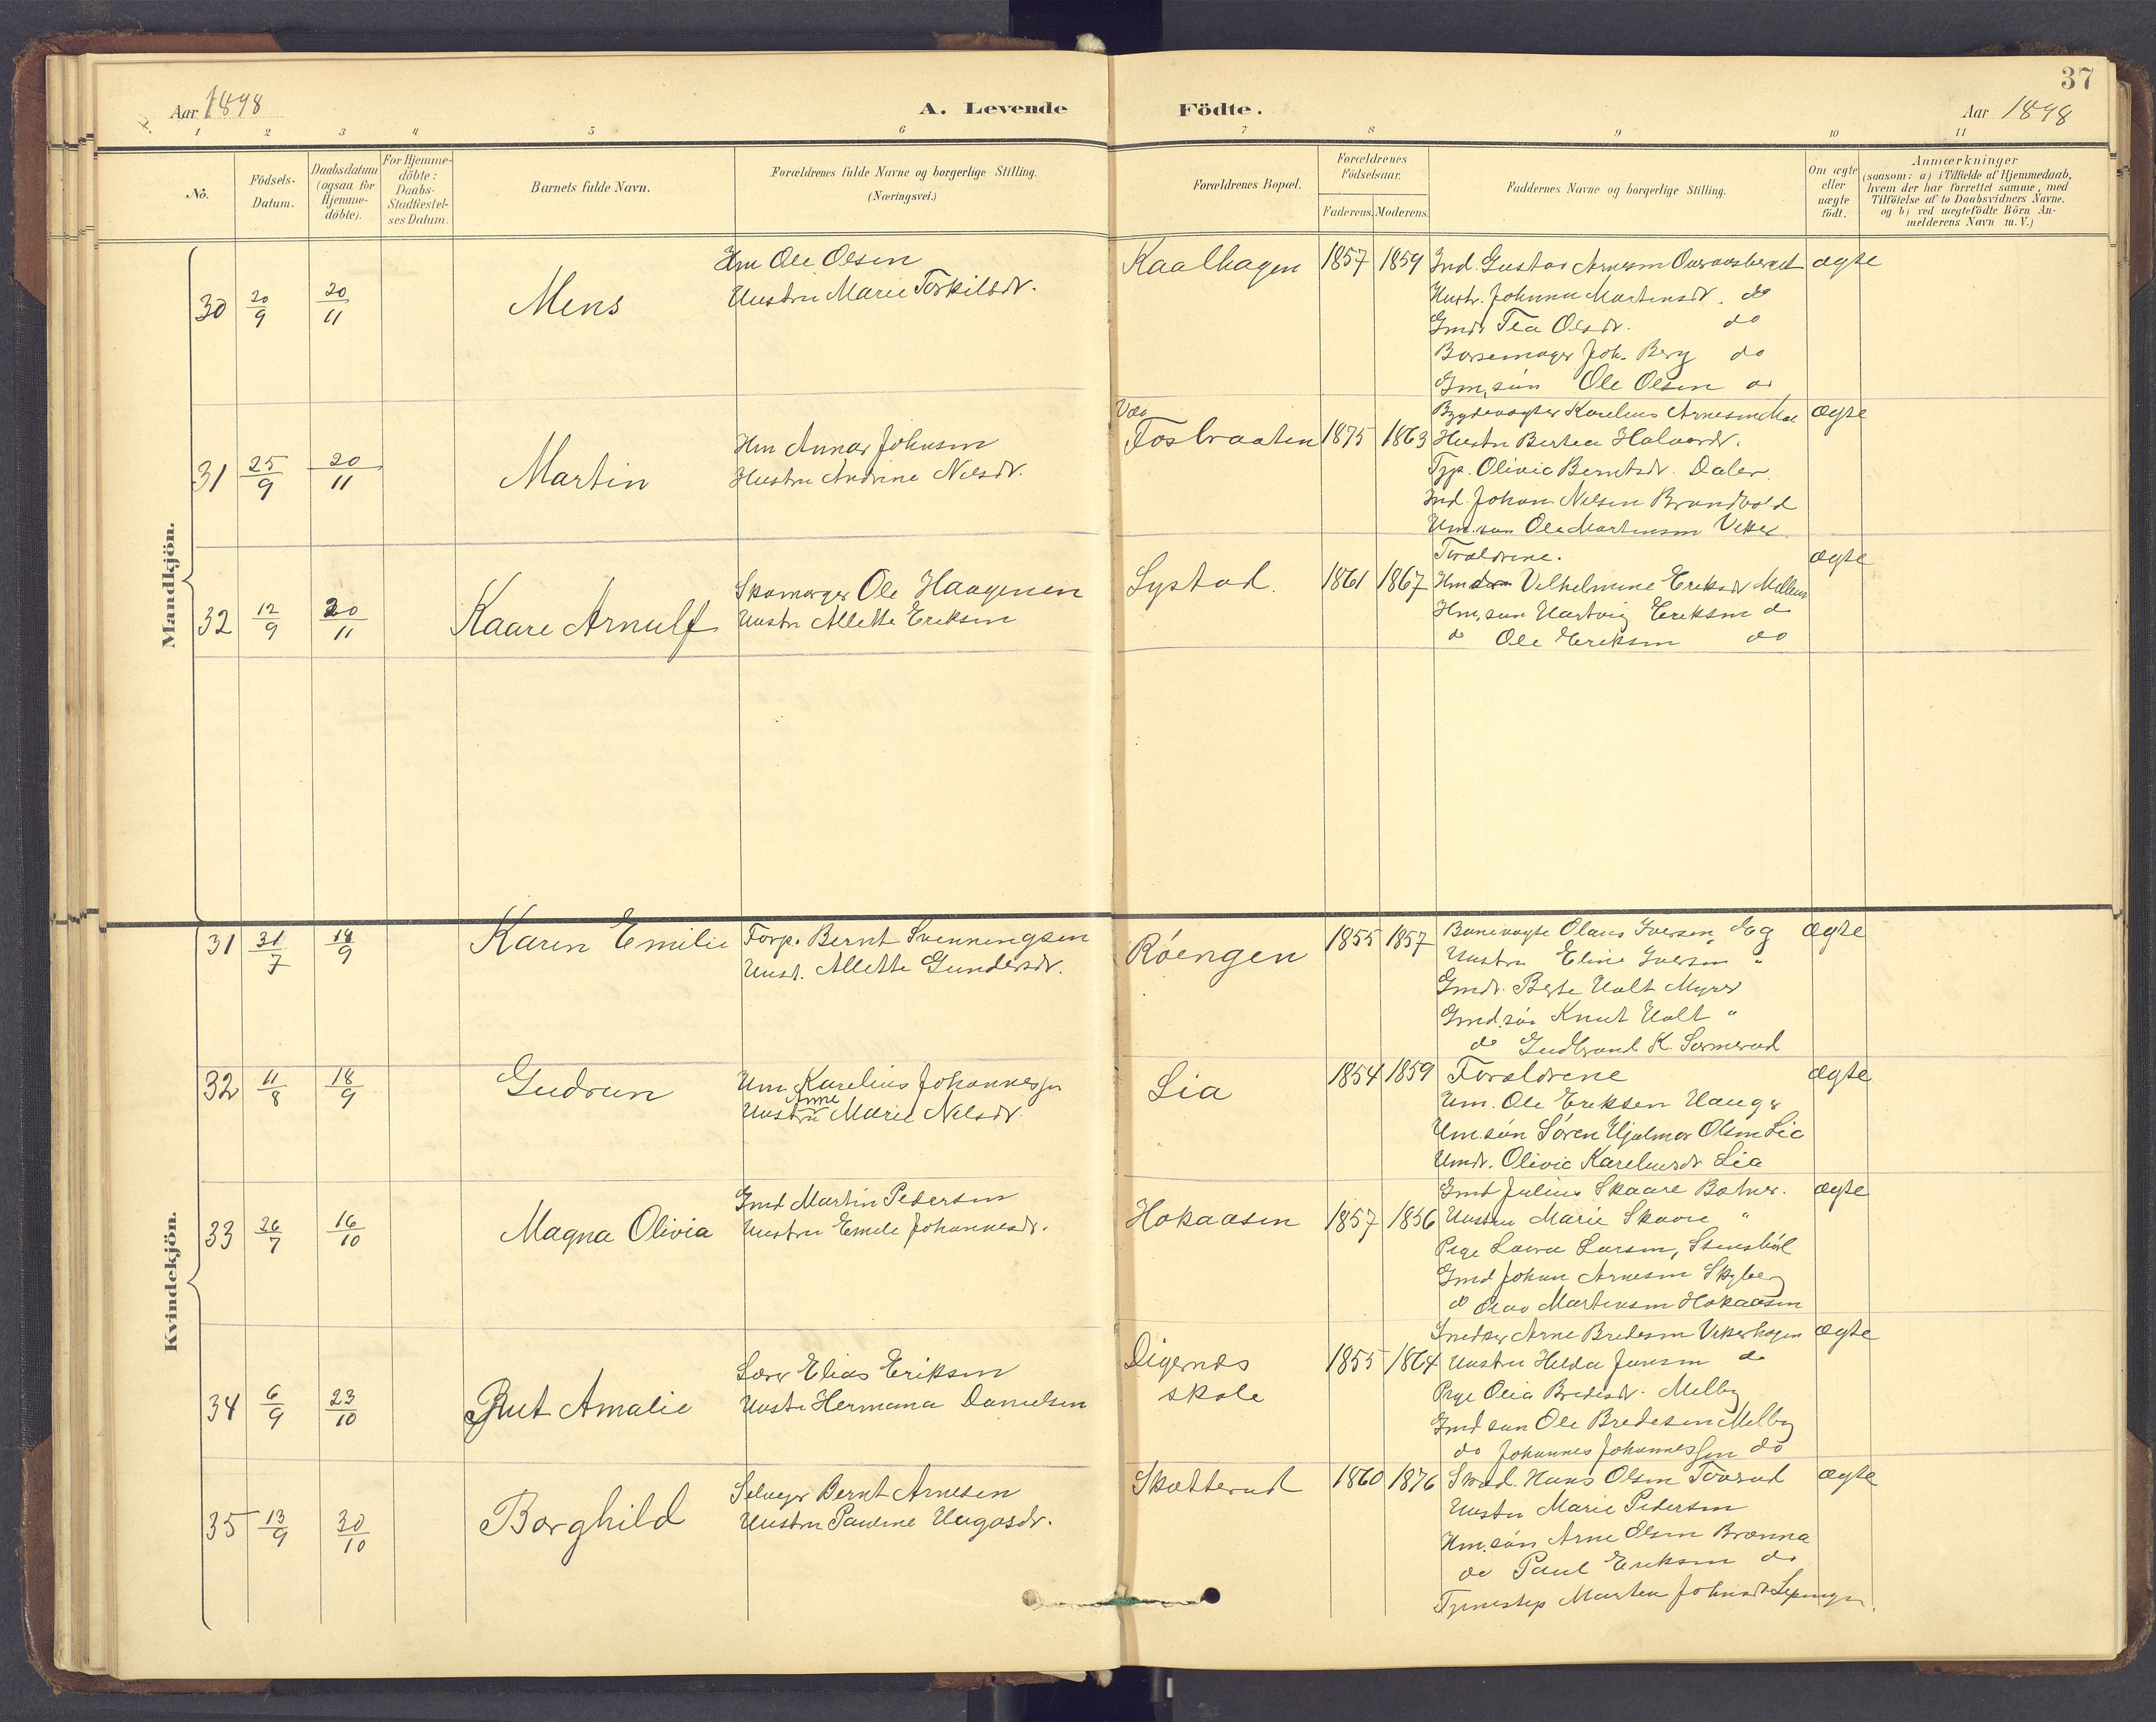 37
Aar 1898
A. Levende Födte.
Aar 1898
1 2 3 4 5 6 7 8 9 10 11
No.
Födsels-Datum.
Daabsdatum (ogsaa for Hjemme-döbte).
For Hjemme-döbte: Daabs-Stadfæstel-ses Datum.
Barnets fulde Navn.
Forældrenes fulde Navne og borgerlige Stilling. (Næringsvei.)
Forældrenes Bopæl.
Forældrenes Födselsaar.
Faderens. Moderens.
Faddernes Navne og borgerlige Stilling.
Om ægte eller uægte födt.
Anmærkninger
(saasom: a) i Tilfælde af Hjemmedaab,
hvem der har forrettet samme, med
Tilföielse af to Daabsvidners Navne.
og b) ved uægtefödte Börn An-
melderens Navn m. V.)
Mandkjön.
30 20/9 20/11 Mens
Hm Ole Olsen
Hustru Marie Torkilsdr.
Kaalhagen 1857 1859
Ind. Gustav Arnesen
Hustr. Johanna Martinsdr. do
Gmdr Tea Olsdr. do
Børsemager Joh. Berg do
Gm.søn Ole Olsen do
ægte
31 25/9 20/11 Martin
Hm Annar Johnsen
Hustru Andrine Nilsdr.
Fosbraaten 1875 1863
Bygdevogter Karelius Arnesen Moe
Hustru Bertea Halvordr.
Tjp. Olivie Berntsdr. Daler
Ind. Johan Nilsen Brandvold
Hm.søn Ole Martinsen
ægte
32 12/9 20/11 Kaare Arnulf
Skomager Ole Haagensen
Hustru Allette Eriksen
Systad. 1861 1867
Forældrene.
Vilhelmine Eriksdr
Hm.søn Hartvig Eriksen do
do Ole Eriksen do
ægte
Kvindekjön.
31 31/7 18/9 Karen Emilie
Torp. Bernt Svenningsen
Hust. Allette Gundersdr.
Røengen 1855 1857
Banevogte Olaus Iversen Eeg
Hustru Eline Iversen "
Gmdr. Berte Holt Myrer
Gmd.søn Knut Holt "
do Gudbrand K. Sormerud
ægte
32 11/8 18/9 Gudrun
Hm. Karelius Johannessen
Anne
Hustru Marie Nilsdr.
Lia 1854 1859
Forældrene
Hm. Ole Eriksen Hauger
Hm.søn Søren Hjalmar Olsen Lia
Hmdr. Olivie Kareliusdr Lia
ægte
33 26/7 16/10 Magna Olivia
Gmd Martin Pedersen
Hustru Emele Johannesdr.
Hokaasen 1857 1856
Gmd Julius Skaare Botner.
Hustru Marie Skaare "
Pige Laura Larsen,
Gmd Johan Arnesen Skyberg
do Olav Martinsen Hokaasen
ægte
34 6/9 23/10 Rut Amalie
Lærer Elias Eriksen
Hustr Hermana Danielsen
Digernes skole 1855 1864
Snedker Arne Bredesen Vikerhagen
Hustru Hilda Jensen do
Pige Olea Bredesdr. Melby
Gmd søn Ole Bredesen Melby
do Johannes Johannessen do
ægte
35 13/9 30/10 Borghild
Selveger Bernt Arnesen
Hustru Pauline Hugosdr.
Skotterud 1860 1876
Skræd. Hans Olsen
Hustru Marie Pedersen
Hm.søn Arne Olsen Brænna
do Paul Eriksen do
Marten
ægte